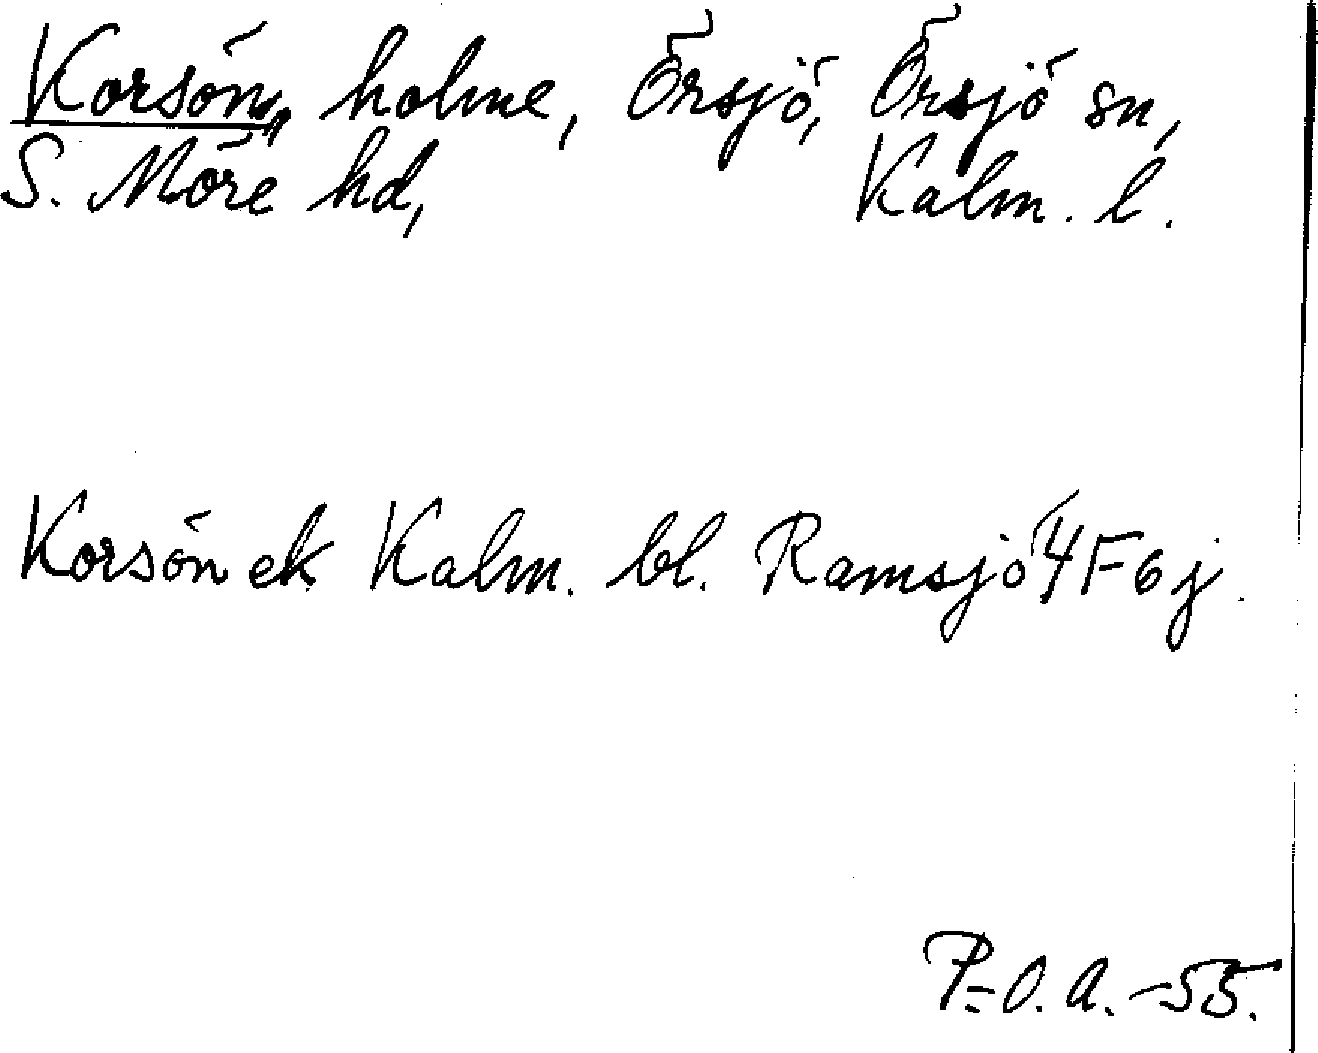 Korsön, holme, Örsjö, Örsjö sn,
S. Möre hd, Kalm. l.
Korsön ek Kalm. bl. Ramsjö 4F6j.
P=O.A.-55.